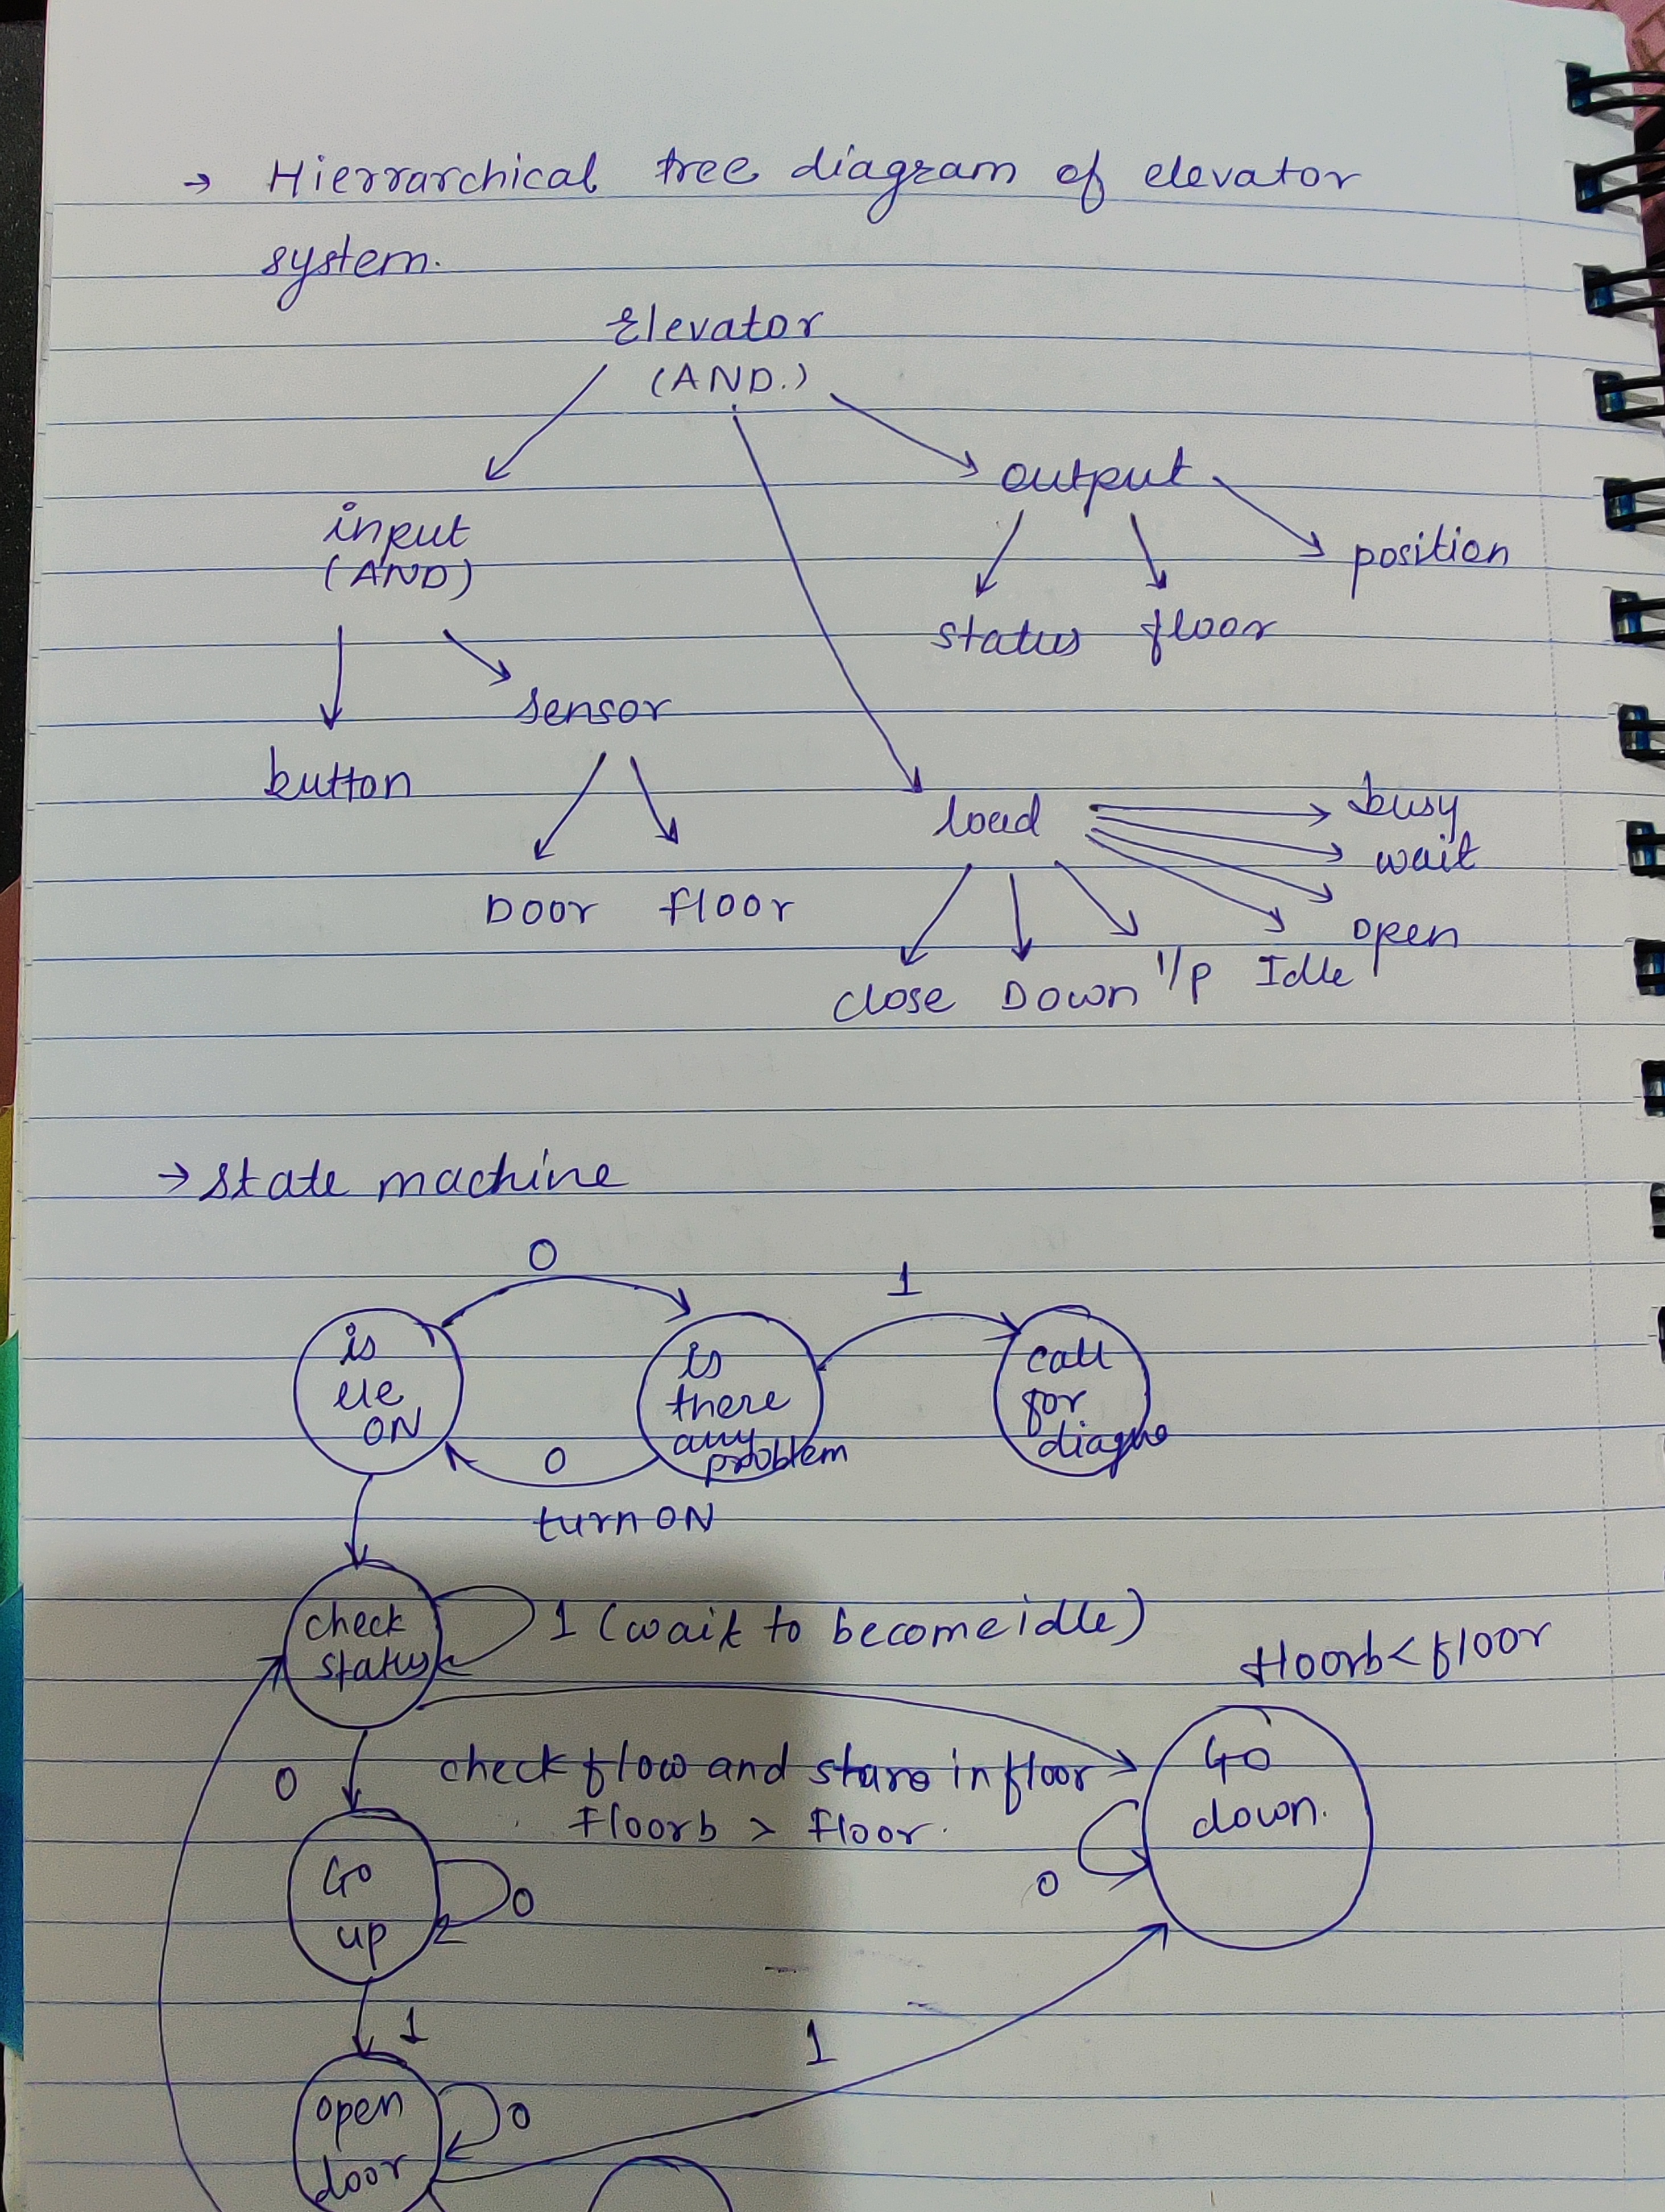 → Hierrarchical tree diagram of elevator
system.
Elevator
(AND.)
output
input
(AND)
position
status floor
sensor
button
load
busy
wait
Door floor
open
close Down I/p Idle
→ state machine
0
1
is
ele
ON
is
there
any
problem
call
for
diagno
0
turn ON
check
status
1 (wait to become idle)
floorb < floor
0
check flow and store in floor
Floorb > Floor.
Go
down.
0
Go
up
0
1
1
open
door
0